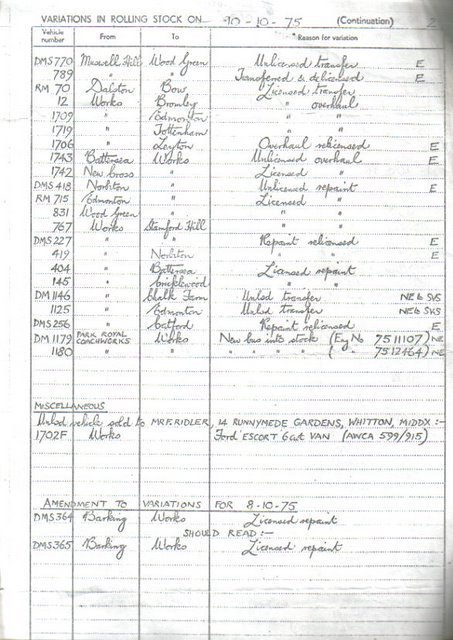 VARIATIONS IN ROLLING STOCK ON 10-10-75 (Continuation) 2
Vehicle number From To Reason for variation
DMS 770 Muswell Hill Wood Green Unlicensed transfer E
789 " " Transferred & delicensed E
RM 70 Dalston Bow Licensed transfer
12 Works Bromley " overhaul
1709 " Edmonton " "
1719 " Tottenham " "
1706 " Leyton Overhaul relicensed E
1743 Battersea Works Unlicensed overhaul E
1742 New Cross " Licensed "
DMS 418 Norbiton " Unlicensed repaint E
RM 715 Edmonton " Licensed "
831 Wood Green " " "
767 Works Stamford Hill " "
DMS 227 " " Repaint relicensed E
419 " Norbiton " " E
404 " Battersea Licensed repaint
145 " Cricklewood " "
DM 1146 " Chalk Farm Unlsd transfer NE to SVS
1125 " Edmonton Unlsd transfer NE to SVS
DMS 256 " Catford Repaint relicensed E
DM 1179 PARK ROYAL COACHWORKS Works New bus into stock (Eng No 7511107) NE
1180 " " " " " " ( " 7512464) NE
MISCELLANEOUS
Unlsd vehicle sold to MR F. RIDLER, 14 RUNNYMEDE GARDENS, WHITTON, MIDDX :-
1702F Works Ford 'ESCORT' 6cwt VAN (AWCA 599/915)
AMENDMENT TO VARIATIONS FOR 8-10-75
DMS 364 Barking Works Licensed repaint
SHOULD READ :-
DMS 365 Barking Works Licensed repaint